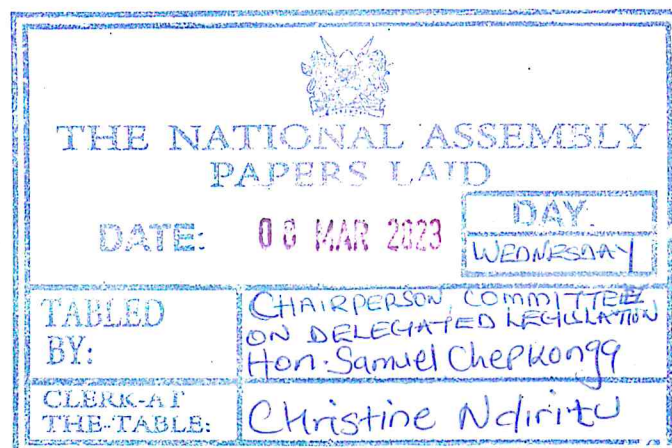 THE NATIONAL ASSEMBLY
PAPERS LAID
DATE: 08 MAR 2023
DAY.
WEDNESDAY
TABLED BY:
CHAIRPERSON, COMMITTEE
ON DELEGATED LEGISLATION
Hon. Samuel Chepkonga
CLERK-AT
THE-TABLE:
Christine Ndiritu